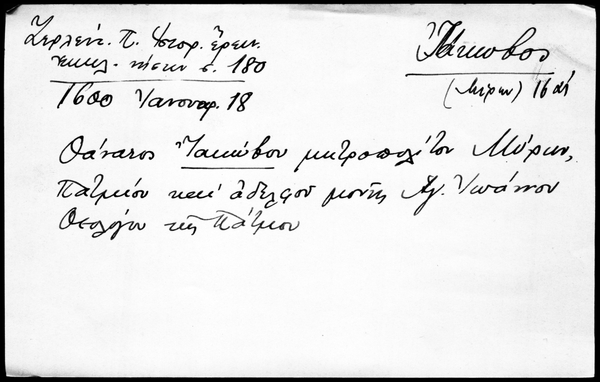 Ζερλέντ. Π. Ἱστορ. ἔρευν.
ἐκκλ. νήσων σ. 180
1600 Ἰανουαρ. 18
Ἰάκωβος
(Μύρων) 16 αἰ
Θάνατος Ἰακώβου μητροπολίτου Μύρων,
Πατμίου καὶ ἀδελφοῦ μονῆς Ἁγ. Ἰωάννου
Θεολόγου τῆς Πάτμου